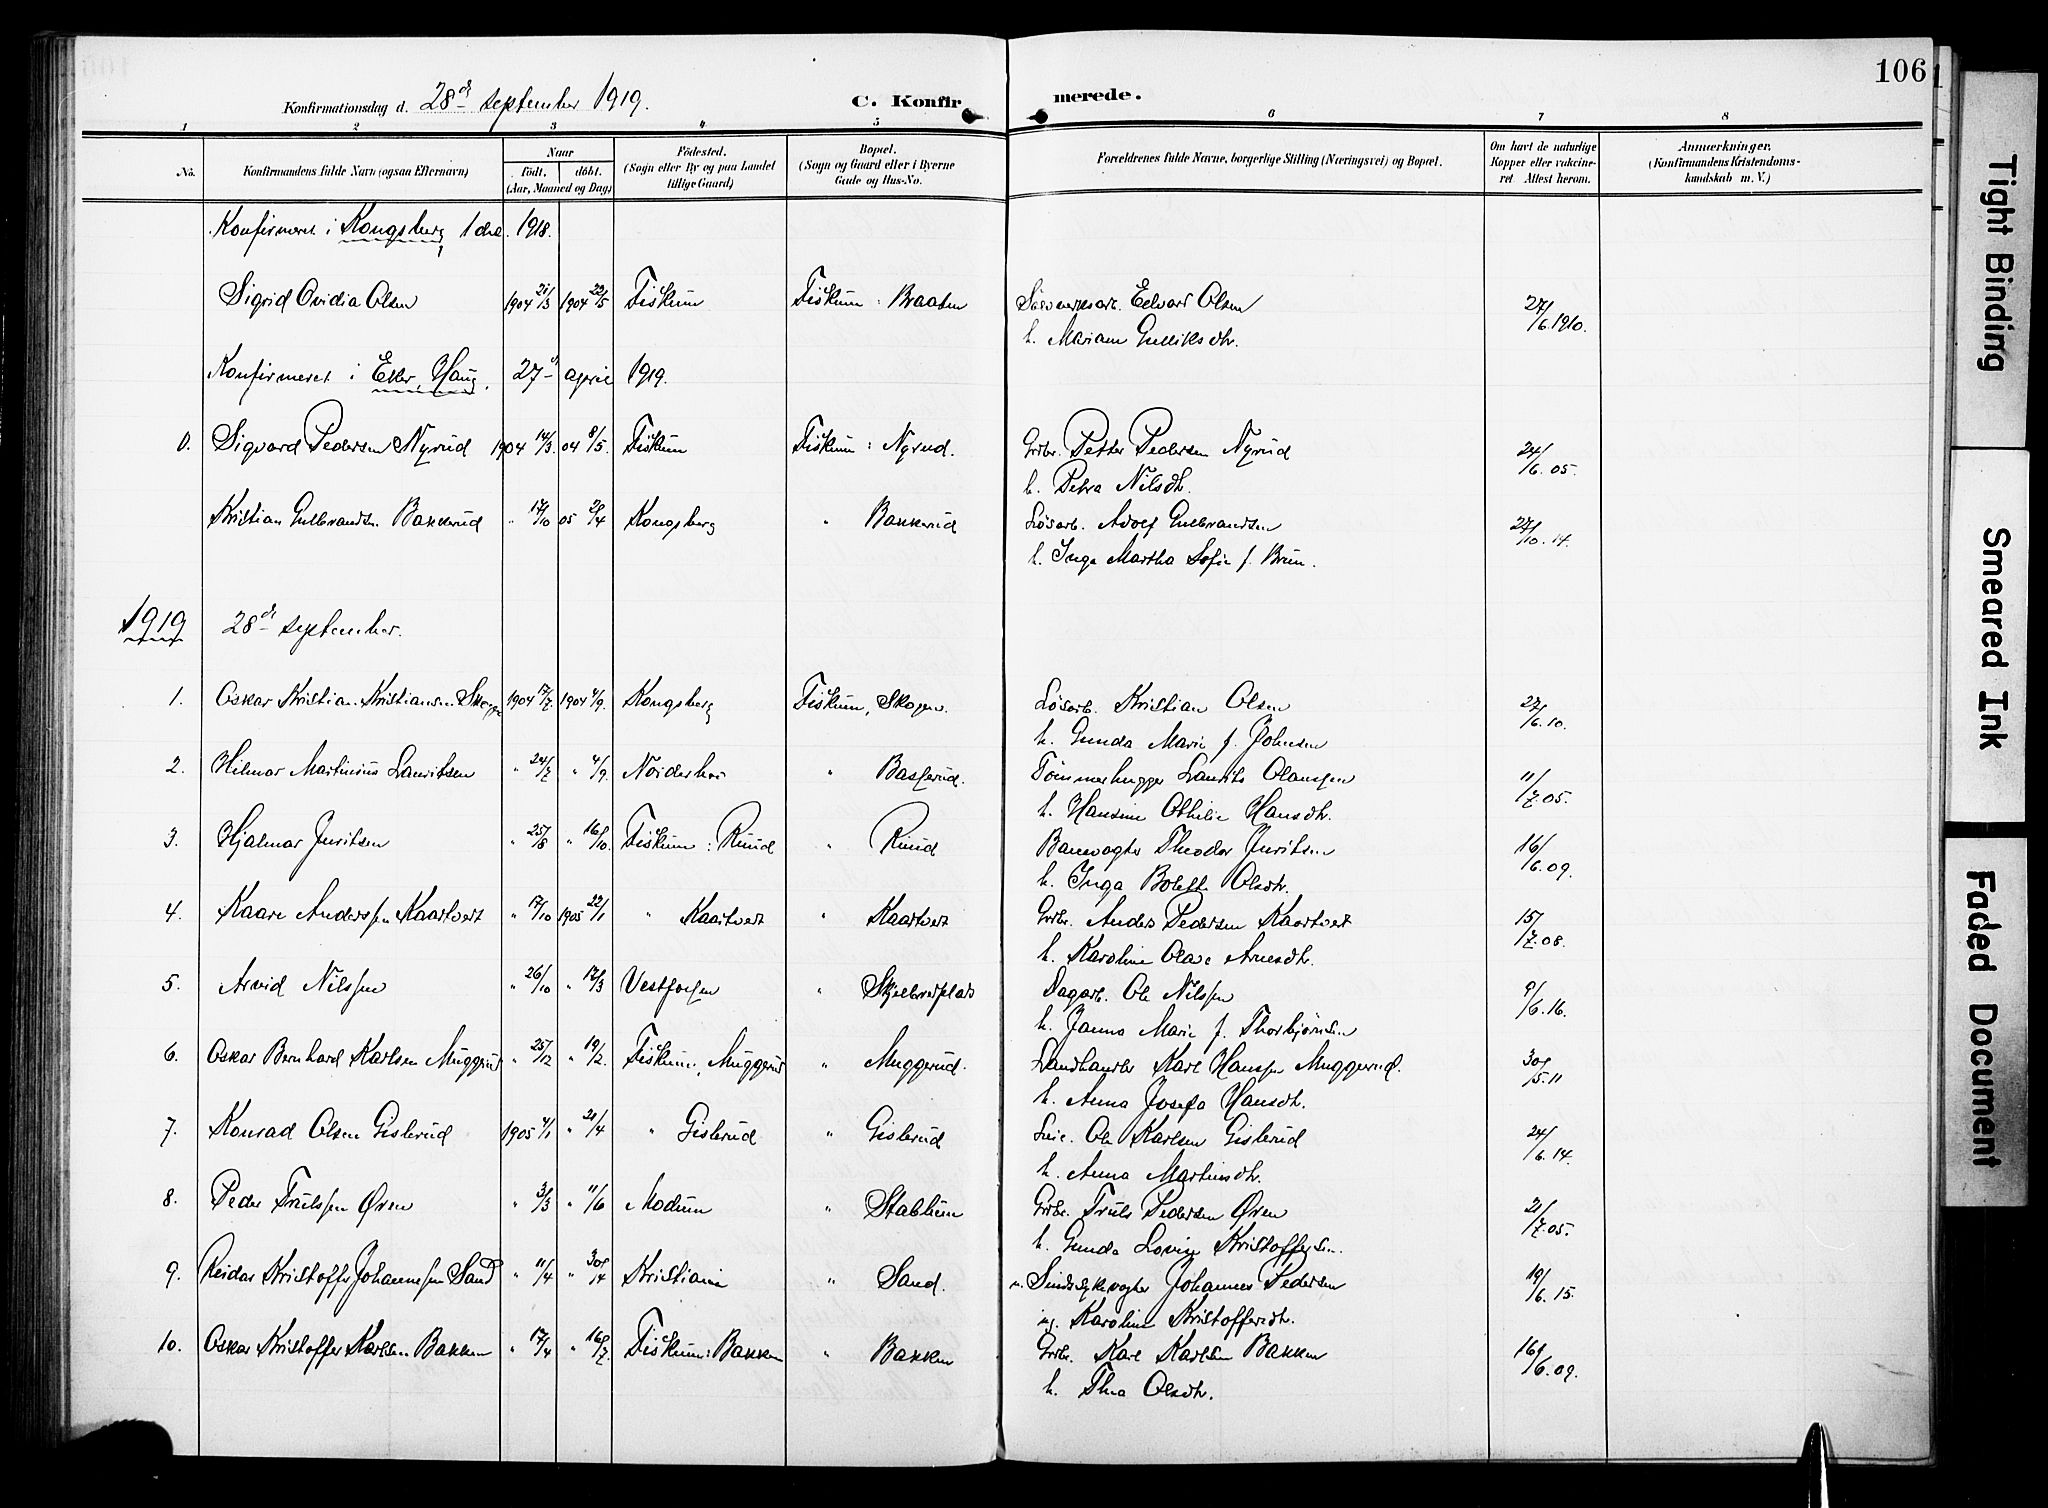 106
Konfirmationsdag d. 28de september 1919. C. Konfirmerede.
1 2 3 4 5 6 7 8
No. Konfirmandens fulde Navn (ogsaa Efternavn) Naar født. døbt. (Aar, Maaned og Dag) Fødested. (Sogn eller By og paa Landet tillige Gaard) Bopæl. (Sogn og Gaard eller i Byerne Gade og Hus-No. Forældrenes fulde Navne, borgerlige Stilling (Næringsvei) og Bopæl. Om havt de naturlige Kopper eller vakcineret Attest herom. Anmerkninger. (Konfirmandens Kristendomskundskab m. V.)
Konfirmeret i Kongsberg 1918.
Sigrid Ovidia Olsen 1904 21/3 1904 22/5 Fiskum Fiskum : Braaten Edvard Olsen 27/6.1910.
h. Mariam Gulliksdtr.
Konfirmeret i Eker, Haug, 27de april 1919.
0. Sigvard Pedersen Nyrud 1904 14/3 04 8/5. Fiskum Fiskum : Nyrud. Grbr. Petter Pedersen Nyrud 24/6.05.
h. Petra Nilsdtr.
Kristian Gulbrandsen Bakkerud " 17/10 05 Kongsberg " Bakkerud Løsarb. Adolf Gulbrandsen 27/10.14.
h. Inga Martha Sofie f. Brun.
1919 28de september.
1. Oskar Kristian Kristiansen 1904 17/7 1904 4/9. Kongsberg Fiskum, Skogen. Løsarb. Kristian Olsen 27/6.10.
h. Gunda Marie f. Johnsen
2. Hilmar Martinius Lauritsen " 24/7 " 4/9. Norderhov " Basserud. Tømmerhugger Laurits Olaussen 11/7.05.
h. Hansine Othilie Hansdtr.
3. Hjalmar Juritsen " 25/8 " 16/10. Fiskum : Ruud " Ruud Banevogter Theodor Juritsen 16/6.09.
h. Inga Bolette Olsdtr.
4. Kaare Anderssen Kaartvert " 17/10 1905 22/1 " Kaartvert " Kaartvert Grbr. Anders Pedersen Kaartvert 15/7.08.
h. Karoline Olava Arnesdtr.
5. Arvid Nilssen " 26/10 " 12/3 Vestfossen " Dagarb. Ole Nilssen 9/6.16.
h. Janna Marie f. Thorbjørnsen
6. Oskar Bernhard Karlsen Muggerud " 25/12 " 19/2. Fiskum, Muggerud " Muggerud. Landhandler Karl Hanssen Muggerud. 30/5.11
h. Anna Josefa Hansdtr.
7. Konrad Olsen Gislerud 1905 4/1 " 21/4 " Gislerud " Gislerud Ole Karlsen Gislerud 24/6.14.
h. Anna Martinsdtr.
8. Peder Trulssen Øren " 3/3 " 11/6 Modum " Stablum Grbr. Truls Pedersen Øren 21/7.05.
h. Gunda Lovise Kristoffersen.
9. Reidar Kristoffer Johannessen Sand " 11/4 " 30/4 Kristiania " Sand. Sindssykevogter Johannes Pedersen 19/6.15.
Karoline Kristoffersdtr.
10. Oskar Kristoffer Karlsen Bakken " 17/4 " 16/7 Fiskum: Bakken " Bakken Grbr. Karl Karlsen Bakken 16/6.09.
h. Thea Olsdtr.
Tight Binding
Smeared Ink
Faded Document